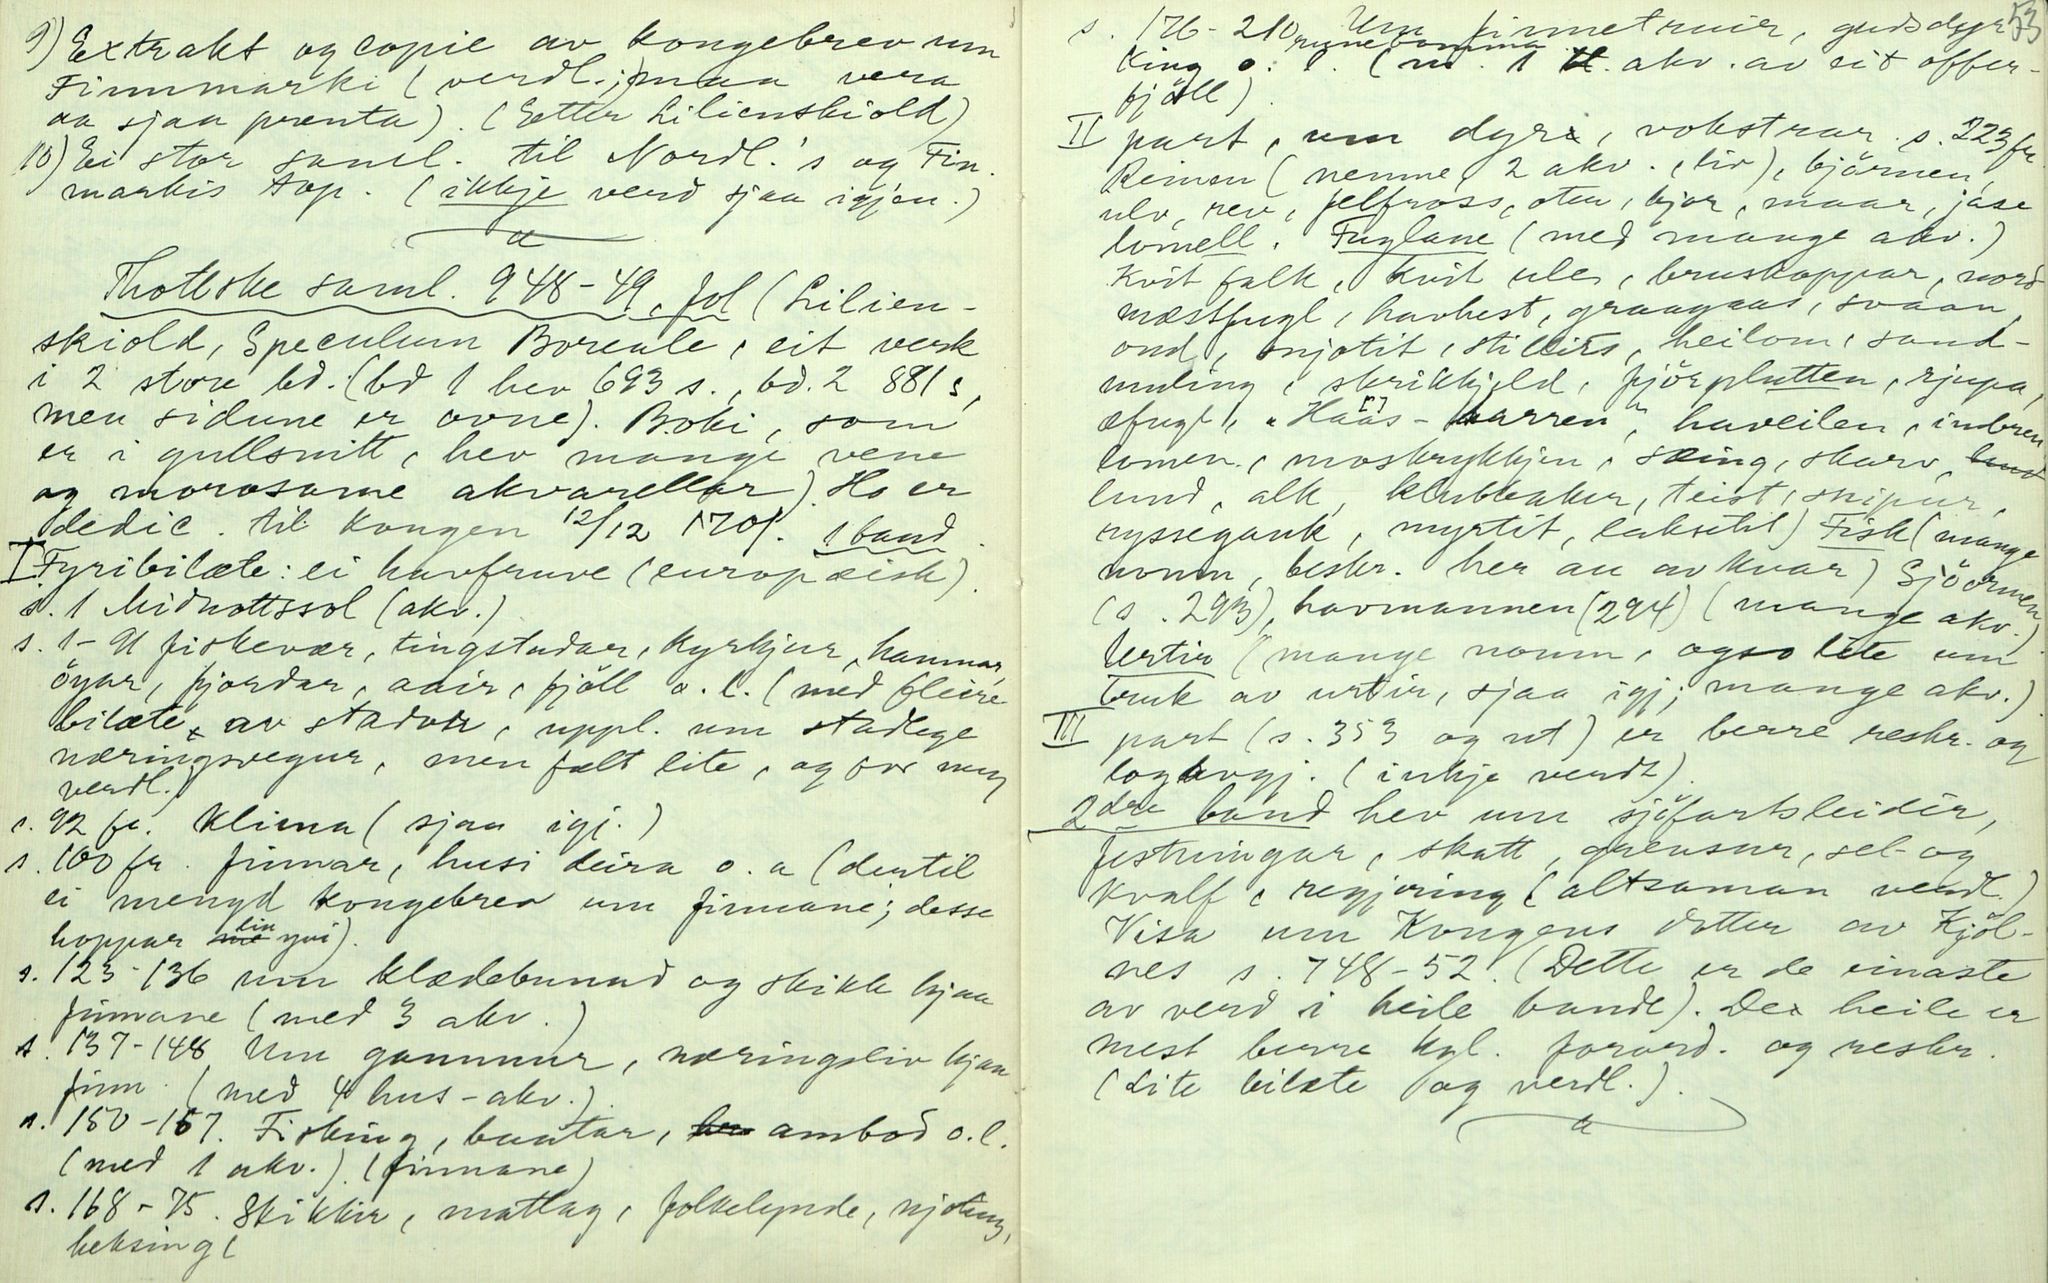 9) Extrakt og copie av kongebrev um
Finnmarki (verdl.; maa vera
aa sjaa prenta). (Etter Lilienskiold)
10) Ei stor saml. til Nordl.'s og Fin-
markis top. (ikkje verd sjaa igjen.)
Thottske saml. 948-49, fol (Lilien-
skiold, Speculum Boreale, eit verk
i 2 store bd. (bd 1 hev 693 s., bd. 2 881 s,
men sidune er ovne). Boki, som
er i gullsnitt, hev mange vene
og morosame akvarellar). Ho er
dedic. til Kongen 12/12 1701. 1 band.
I Fyribilæte: ei havfruve (europæisk).
s. 1 Midnottssol (akv.)
s. 1-91 fiskevær, tingstadar, kyrkjur, hamnar,
öyar, fjordar, aair, fjöll o. l. (med fleire
bilæte av stadar, uppl. um stadlege
næringsvegur, men fælt lite, og
verdl.)
s. 92 fr. Klima (sjaa igj.)
s. 100 fr. finnar, husi deira o. a (dertil
ei mengd kongebrev um finnane; desse
hoppar ein yvi).
s. 123-136 um klædebunad og skikk hjaa
finnane (med 3 akv.)
s. 137-148 Um gammur, næringsliv hjaa
finn. (med 4 hus-akv.)
s. 150-157. Fisking, baatar, ambod o. l.
(med 1 akv.) (finnane)
s. 168-75. Skikkir, matlag, folkelynde,
heksing,
53
s. 176-210 Um finnetruir, gudsdyr-
king runebomma o. l. (m. 1 akv. av eit offer-
fjöll)
II part, um dyr, vokstrar s. 223 fr.
Reinen (nemne, 2 akv., liv), björnen,
ulv, rev, felfross, oter, bjor, maar, jase
lomell. Fuglane (med mange akv.)
Kvit falk, kvit ule, bruskoppar, nord
næstfugl, havhest, graagaas, svaan,
ond, snjotit, heilom, sand-
muling, skrikkjeld, fjörplutten, rjupa,
æfugl, "Haas-karren", haveilen, imbren
lomen, moskrykkjen, sæing, skarv,
lund, alk, klubbalker, teist, skipur,
ryssegauk, myrtit, laksetit) Fisk (mange
nomn, beskr. her au av kvar) Sjöormen
(s. 293), havmannen (294) (mange akv.)
Urtir (mange nomn, ogso lite um
bruk av urtir, sjaa igj; mange akv.)
III part (s. 353 og ut) er berre reskr. og
loglovgj. (inkje verdt)
2dre band hev um sjöfartsleidir,
festningar, skatt, grensur, sel- og
kvalf, regjering (altsaman verdl.)
Visa um Kongens dotter av Kjöl-
nes s. 748-52. (Dette er de einaste
av verd i heile bandet). De heile er
mest berre kgl. forord. og reskr.
(Lite bilæte og verdl.)